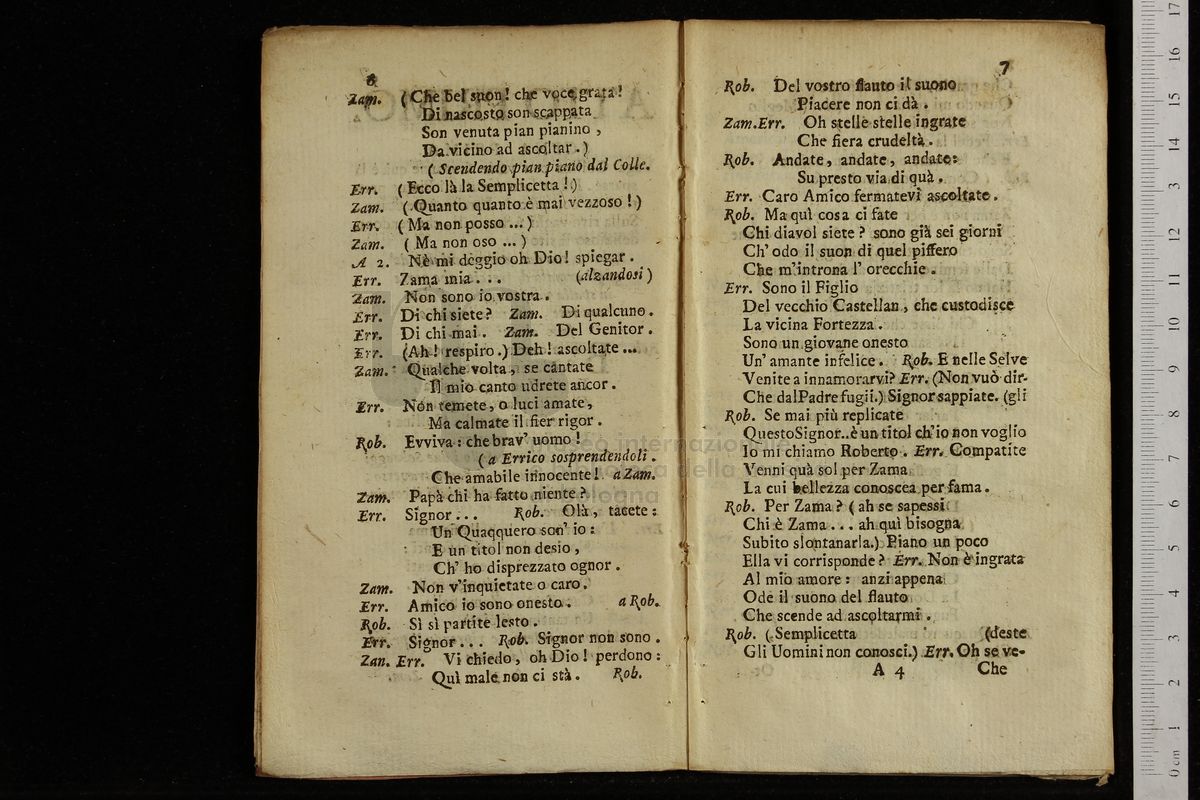 6
Zam. (Che bel suon! che voce grata!
Di nascosto son scappata
Son venuta pian pianino,
Da vicino ad ascoltar.)
(Scendendo pian piano dal Colle.
Err. (Ecco là la Semplicetta!)
Zam. (Quanto quanto è mai vezzoso!)
Err. (Ma non posso ...)
Zam. (Ma non oso ...)
A 2. Nè mi deggio oh Dio! spiegar.
Err. Zama mia... (alzandosi)
Zam. Non sono io vostra.
Err. Di chi siete? Zam. Di qualcuno.
Err. Di chi mai. Zam. Del Genitor.
Err. (Ah! respiro.) Deh! ascoltate ...
Zam. Qualche volta, se cantate
Il mio canto udrete ancor.
Err. Non temete, o luci amate,
Ma calmate il fier rigor.
Rob. Evviva: che brav' uomo!
(a Errico sosprendendoli.
Che amabile innocente! a Zam.
Zam. Papà chi ha fatto niente?
Err. Signor... Rob. Olà, tacete:
Un Quacquero son' io:
E un titol non desio,
Ch' ho disprezzato ognor.
Zam. Non v'inquietate o caro.
Err. Amico io sono onesto. a Rob.
Rob. Sì sì partite lesto.
Err. Signor... Rob. Signor non sono.
Zan. Err. Vi chiedo, oh Dio! perdono:
Quì male non ci stà. Rob.
7
Rob. Del vostro flauto il suono
Piacere non ci dà.
Zam. Err. Oh stelle stelle ingrate
Che fiera crudeltà.
Rob. Andate, andate, andate:
Su presto via di quà.
Err. Caro Amico fermatevi ascoltate.
Rob. Ma quì cosa ci fate
Chi diavol siete? sono già sei giorni
Ch' odo il suon di quel piffero
Che m'introna l' orecchie.
Err. Sono il Figlio
Del vecchio Castellan, che custodisce
La vicina Fortezza.
Sono un giovane onesto
Un' amante infelice. Rob. E nelle Selve
Venite a innamorarvi? Err. (Non vuò dir-
Che dalPadre fugii.) Signor sappiate. (gli
Rob. Se mai più replicate
QuestoSignor..è un titol ch'io non voglio
Io mi chiamo Roberto. Err. Compatite
Venni quà sol per Zama
La cui bellezza conoscea per fama.
Rob. Per Zama? (ah se sapessi
Chi è Zama... ah quì bisogna
Subito slontanarla.) Piano un poco
Ella vi corrisponde? Err. Non è ingrata
Al mio amore: anzi appena
Ode il suono del flauto
Che scende ad ascoltarmi.
Rob. (Semplicetta (deste
Gli Uomini non conosci.) Err. Oh se ve-
A 4 Che